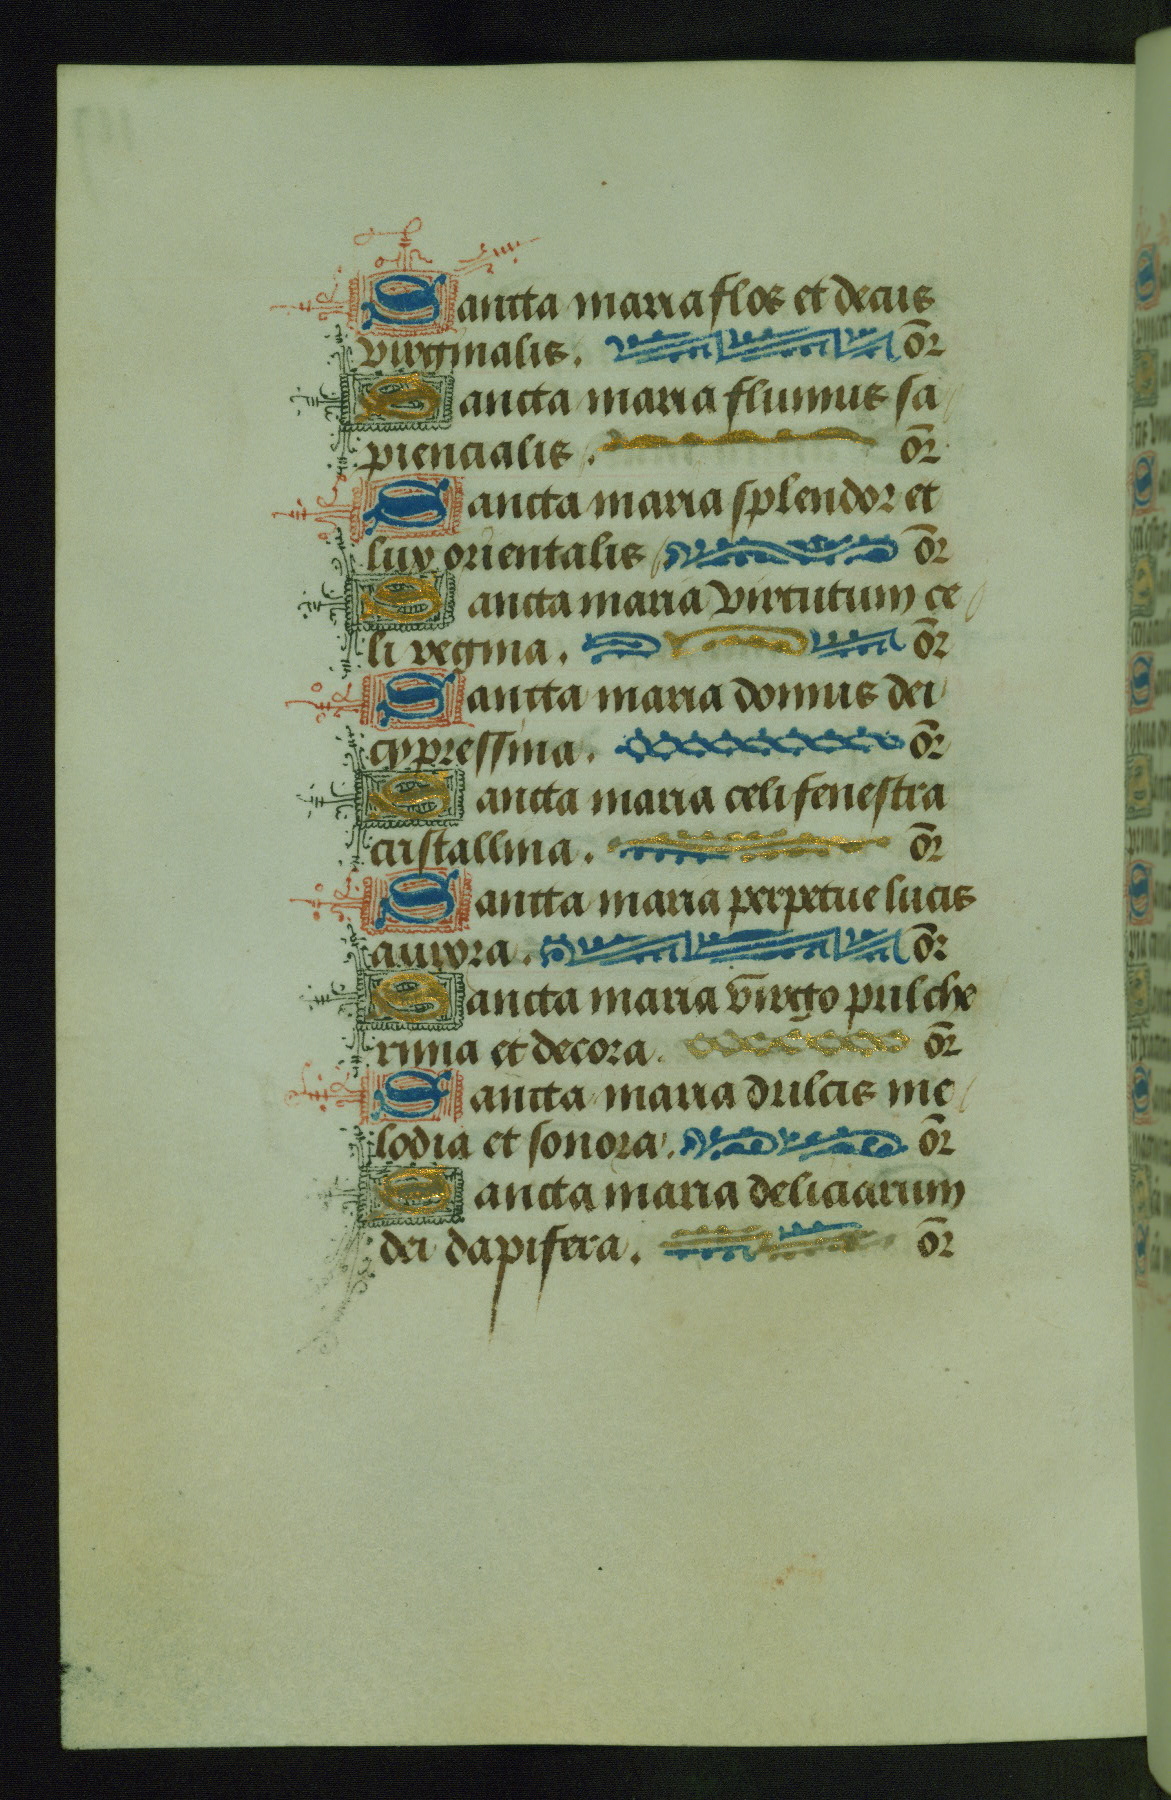 Sancta maria flos et decus
virginalis. or̄
Sancta maria fluuius sa
piencialis. or̄
Sancta maria splendor et
lux orientalis or̄
Sancta maria virtutum ce
li regina. or̄
Sancta maria domus dei
cypressina. or̄
Sancta maria celi fenestra
cristallina. or̄
Sancta maria perpetue lucis
aurora. or̄
Sancta maria virgo pulche
rima et decora. or̄
Sancta maria dulcis me
lodia et sonora. or̄
Sancta maria deliciarum
dei dapifera. or̄